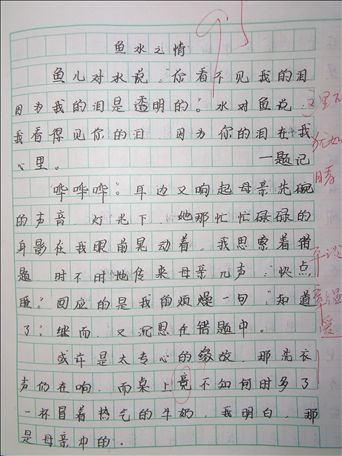 95
鱼水之情
鱼儿对水说，你看不见我的泪
因为我的泪是透明的。水对鱼说，
我看得见你的泪，因为你的泪在我
心里。 —题记
哗哗哗：耳边又响起母亲洗碗
的声音，灯光下，她那忙忙碌碌的
身影在我眼前晃动着，我思索着错
题，时不时地传来母亲几声：“快点
睡”回应的是我的烦燥一句“知道
了”继而，又沉思在错题中。
或许是太专心的缘故，那洗衣
声仍在响，而桌上竟不知何时多了
一杯冒着热气的牛奶，我明白，那
是母亲中的。